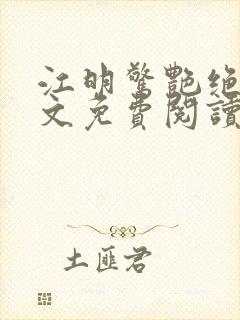 江明驚艷绝
文免費閱讀
土匪君